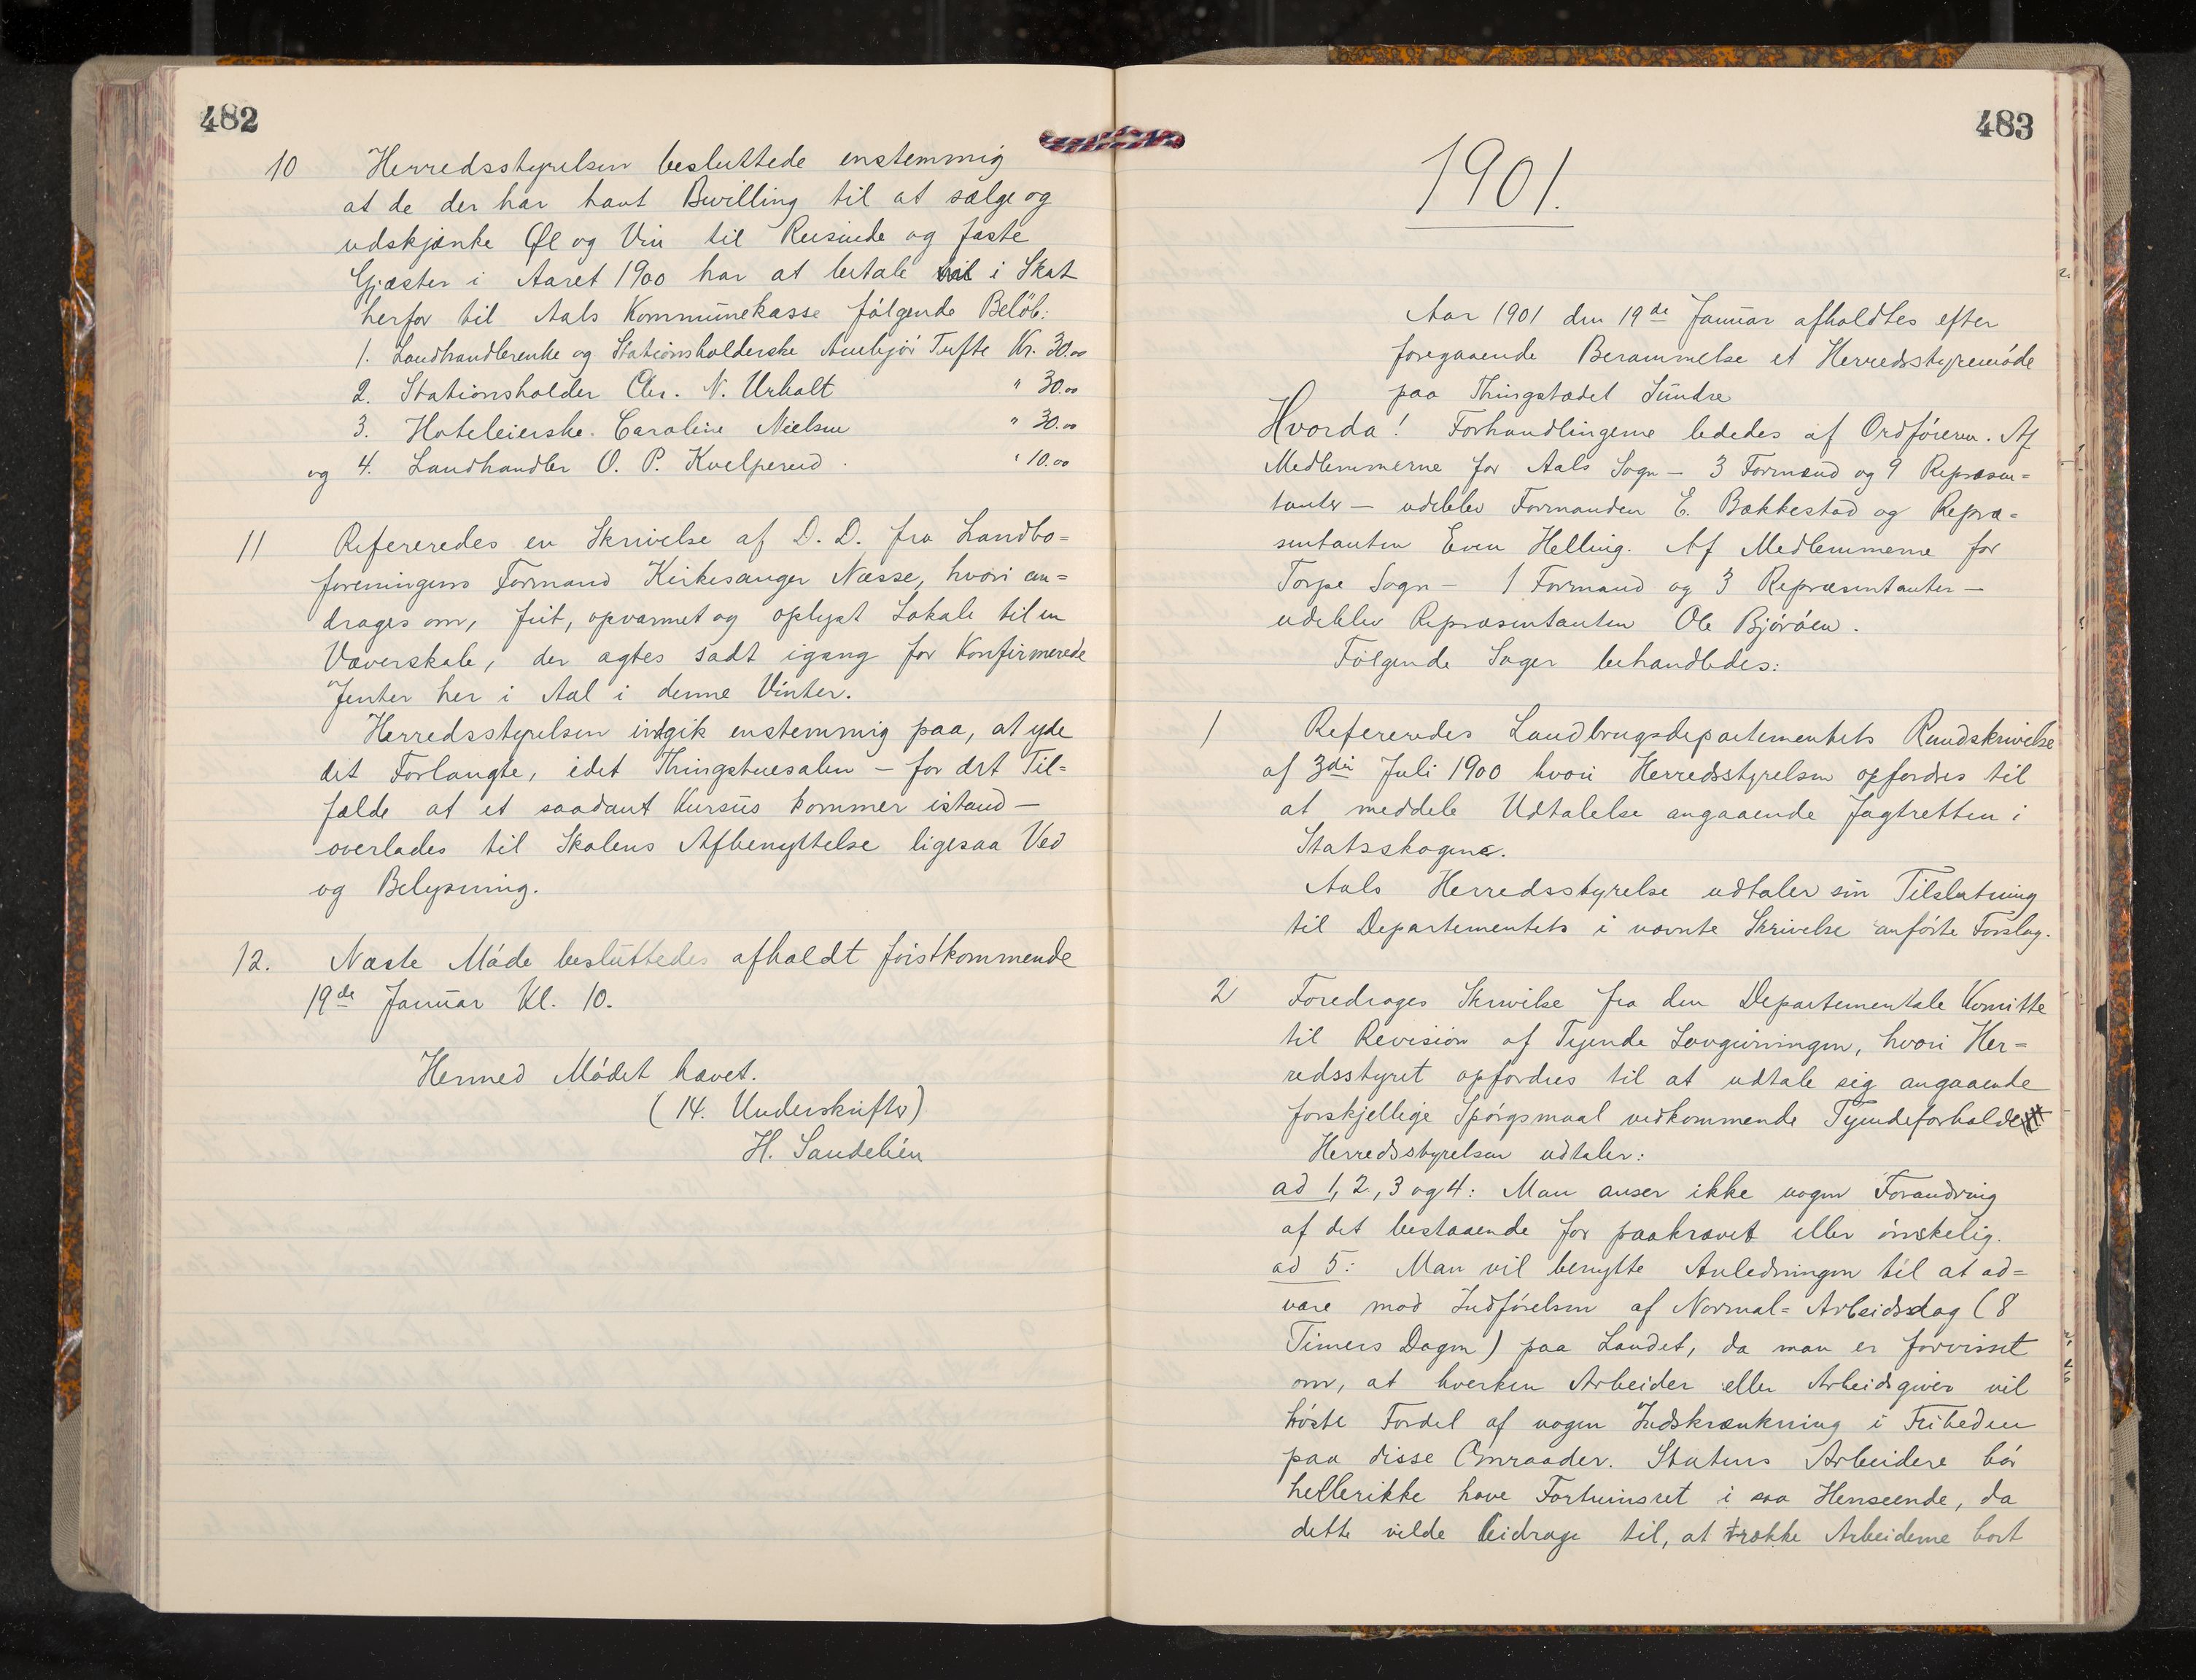 482
10 Herredsstyrelsen besluttede enstemmig
at de der har havt Bevilling til at sælge og
udskjænke Øl og Vin til Reisende og faste
Gjæster i Aaret 1900 har at betale i Skat
herfor til Aals Kommunekasse følgende Beløb:
1. Landhandlerenke og Stationsholderske Ambjør Tufte Kr. 30.00
2. Stationsholder Chr. N. Urholt " 30.00
3. Hoteleierske Caroline Nielsen " 30.00
og 4. Landhandler O. P. Kvelprud " 10.00
11 Refereredes en Skrivelse af D. D. fra Landbo=
foreningens Formand Kirkesanger Næsse, hvori an=
drages om, frit, opvarmet og oplyst Lokale til en
Væverskole, der agtes sadt igang for Konfirmerede
Jenter her i Aal i denne Vinter.
Herredsstyrelsen indgik enstemmig paa, at yde
det Forlangte, idet Thingstuesalen – for det Til=
fælde at et saadant Kursus kommer istand –
overlades til Skolens Afbenyttelse ligesaa Ved
og Belysning.
12. Næste Møde besluttedes afholdt førstkommende
19de Januar Kl. 10.
Hermed Mødet hævet.
(14. Underskrifter)
H. Sandelien
483
1901.
Aar 1901 den 19de Januar afholdtes efter
foregaaende Berammelse et Herredsstyremøde
paa Thingstedet Sundre
Hvorda! Forhandlingerne lededes af Ordføreren. Af
Medlemmerne for Aals Sogn – 3 Formænd og 9 Repræsen=
tanter – udeblev Formanden E. Bakkestad og Repræ=
sentanten Even Helling. Af Medlemmerne for
Torpe Sogn – 1 Formand og 3 Repræsentanter –
udeblev Repræsentanten Ole Bjøråen.
Følgende Sager behandledes:
1 Refereredes Landbrugsdepartementets Rundskrivelse
af 3die Juli 1900 hvori Herredsstyrelsen opfordres til
at meddele Udtalelse angaaende Jagtretten i
Statsskogene.
Aals Herredsstyrelse udtaler sin Tilslutning
til Departementets i nævnte Skrivelse anførte Forslag.
2 Foredrages Skrivelse fra den Departementale Komitte
til Revision af Tyende Lovgivningen, hvori Her=
redsstyret opfordres til at udtale sig angaaende
forskjellige Spørgsmaal vedkommende Tyendeforholdet
Herredsstyrelsen udtaler:
ad 1, 2., 3 og 4: Man anser ikke nogen Forandring
af det bestaaende for paakrævet eller ønskelig.
ad 5: Man vil benytte Anledningen til at ad=
vare mod Indførelsen af Normal= Arbeidsdag (8
Timers Dagen) paa Landet, da man er forvisset
om, at hverken Arbeider eller Arbeidsgiver vil
høste Fordel af nogen Indskrænkning i Friheden
paa disse Omraader. Statens Arbeidere bør
hellerikke have Fortrinsret i saa Henseende, da
dette vilde bidrage til, at trække Arbeiderne bort